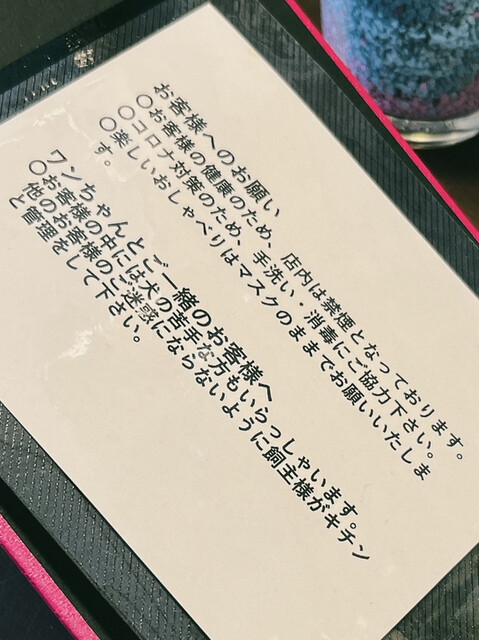 お客様へのお願い
○お客様の健康のため、店内は禁煙となっております。
○コロナ対策のため、手洗い・消毒にご協力下さい。
○楽しいおしゃべりはマスクのままでお願いいたしま
す。
ワンちゃんとご一緒のお客様へ
○お客様の中には犬の苦手な方もいらっしゃいます。
他のお客様のご迷惑にならないように飼主様がキチン
と管理をして下さい。